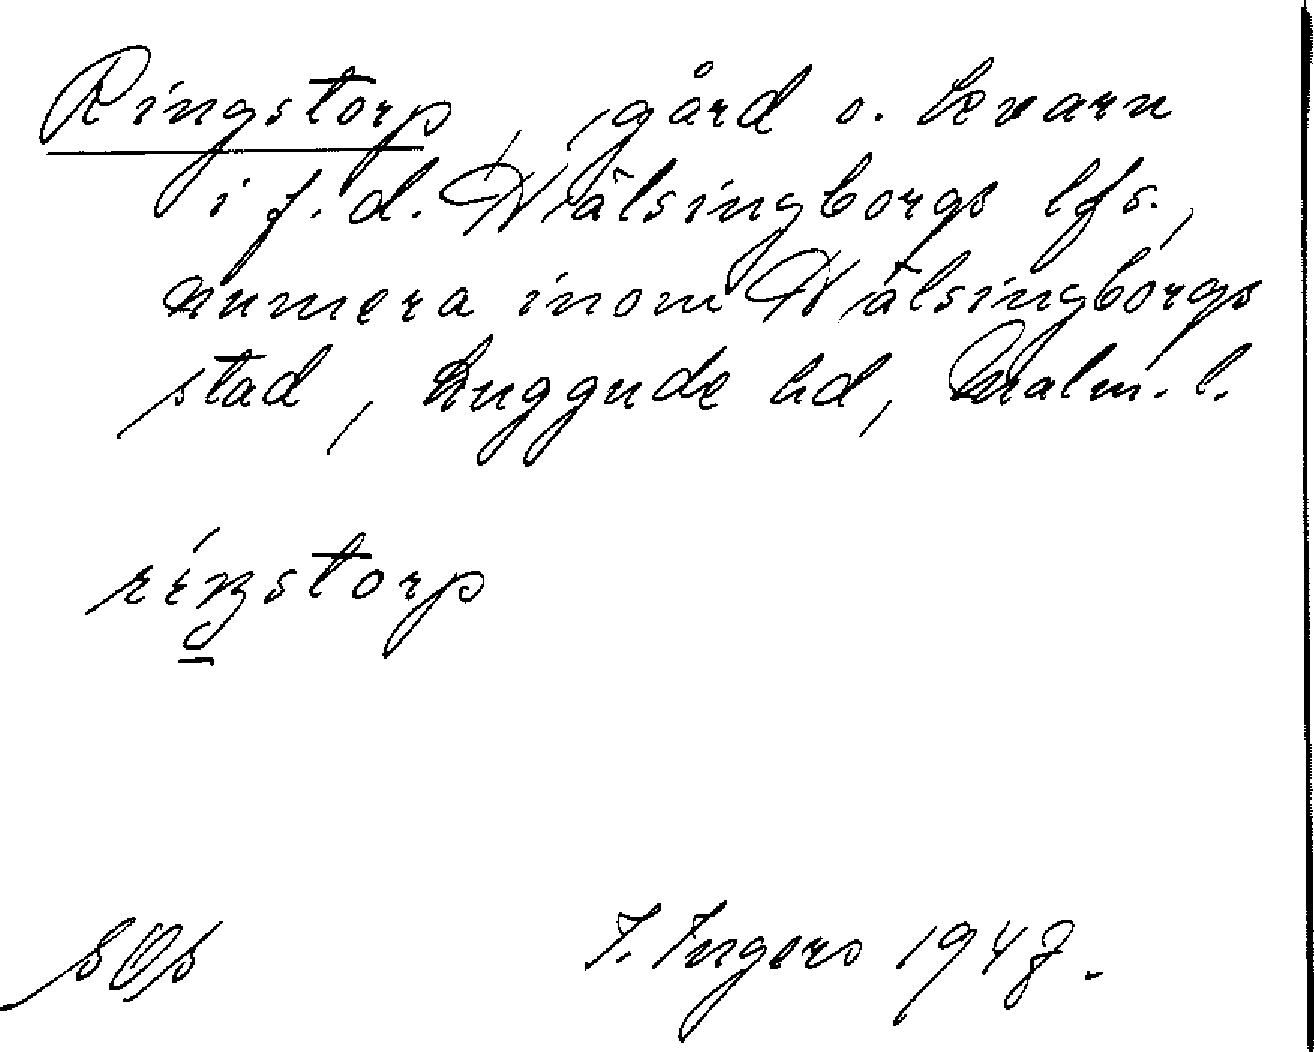 Ringstorp, gård o. kvarn
i f. d. Hälsingborgs lfs.,
numera inom Hälsingborgs
stad, Luggude hd, Malm. l.
ríŋstorp
SOS
I. Ingers 1947.